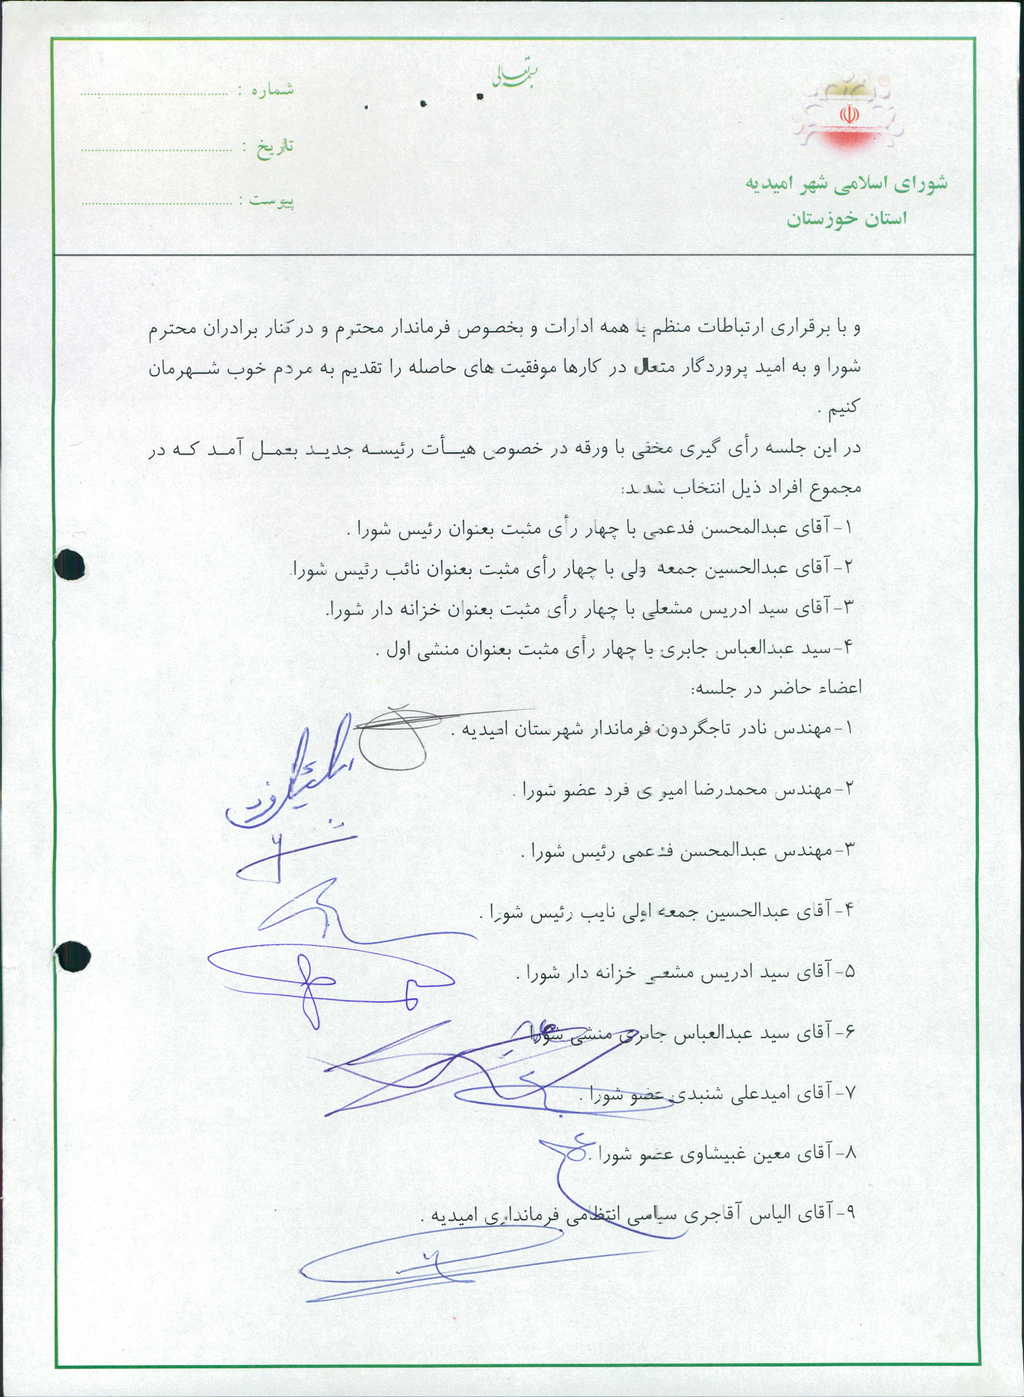 بسمه تعالی
شورای اسلامی شهر امیدیه
استان خوزستان
شماره :
تاریخ :
پیوست :
و با برقراری ارتباطات منظم با همه ادارات و بخصوص فرماندار محترم و در کنار برادران محترم
شورا و به امید پروردگار متعال در کارها موفقیت های حاصله را تقدیم به مردم خوب شهرمان
کنیم .
در این جلسه رأی گیری مخفی با ورقه در خصوص هیأت رئیسه جدید بعمل آمد که در
مجموع افراد ذیل انتخاب شدند:
۱- آقای عبدالمحسن فدعمی با چهار رأی مثبت بعنوان رئیس شورا .
۲- آقای عبدالحسین جمعه ولی با چهار رأی مثبت بعنوان نائب رئیس شورا.
۳- آقای سید ادریس مشعلی با چهار رأی مثبت بعنوان خزانه دار شورا.
۴- سید عبدالعباس جابری با چهار رأی مثبت بعنوان منشی اول .
اعضاء حاضر در جلسه:
۱- مهندس نادر تاجگردون فرماندار شهرستان امیدیه .
۲- مهندس محمدرضا امیری فرد عضو شورا .
۳- مهندس عبدالمحسن فدعمی رئیس شورا .
۴- آقای عبدالحسین جمعه اولی نایب رئیس شورا .
۵- آقای سید ادریس مشعی خزانه دار شورا .
۶- آقای سید عبدالعباس جابری منشی شورا
۷- آقای امیدعلی شنبدی عضو شورا .
۸- آقای معین غبیشاوی عضو شورا .
۹- آقای الیاس آقاجری سیاسی انتظامی فرمانداری امیدیه .